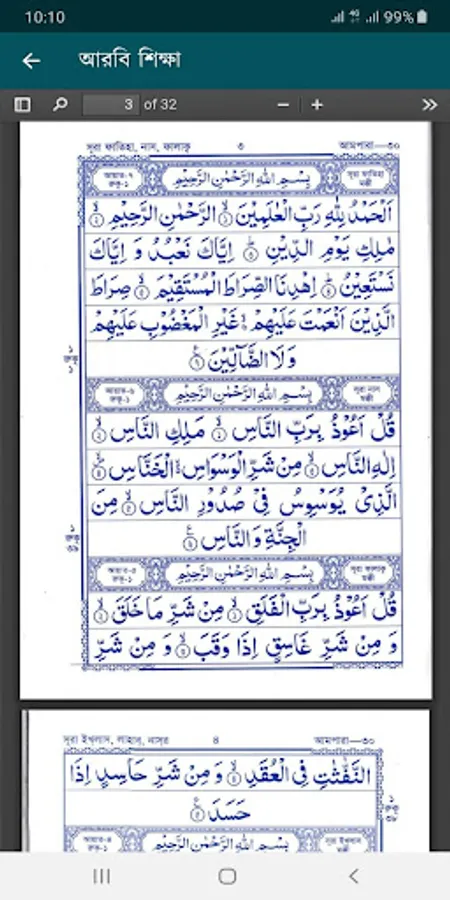 10:10
4G 99%
আরবি শিক্ষা
3 of 32
সূরা ফাতিহা, নাস, ফালাক্ব ৩ আমপারা—৩০
আয়াত-৭ রুকু-১ بِسْمِ اللهِ الرَّحْمٰنِ الرَّحِيْمِ সূরা ফাতিহা মক্কী
اَلْحَمْدُ لِلّٰهِ رَبِّ الْعٰلَمِيْنَ الرَّحْمٰنِ الرَّحِيْمِ
مٰلِكِ يَوْمِ الدِّيْنِ اِيَّاكَ نَعْبُدُ وَ اِيَّاكَ
نَسْتَعِيْنُ اِهْدِنَا الصِّرَاطَ الْمُسْتَقِيْمَ صِرَاطَ
الَّذِيْنَ اَنْعَمْتَ عَلَيْهِمْ غَيْرِ الْمَغْضُوْبِ عَلَيْهِمْ
وَلَا الضَّآلِّيْنَ
আয়াত-৬ রুকু-১ بِسْمِ اللهِ الرَّحْمٰنِ الرَّحِيْمِ সূরা নাস মক্কী
قُلْ اَعُوْذُ بِرَبِّ النَّاسِ مَلِكِ النَّاسِ
اِلٰهِ النَّاسِ مِنْ شَرِّ الْوَسْوَاسِ الْخَنَّاسِ
الَّذِيْ يُوَسْوِسُ فِيْ صُدُوْرِ النَّاسِ مِنَ
الْجِنَّةِ وَ النَّاسِ
আয়াত-৫ রুকু-১ بِسْمِ اللهِ الرَّحْمٰنِ الرَّحِيْمِ সূরা ফালাক্ব মক্কী
قُلْ اَعُوْذُ بِرَبِّ الْفَلَقِ مِنْ شَرِّ مَا خَلَقَ
وَ مِنْ شَرِّ غَاسِقٍ اِذَا وَقَبَ وَ مِنْ شَرِّ
সূরা ইখলাস, লাহাব, নাস্‌র ৪ আমপারা—৩০
النَّفّٰثٰتِ فِي الْعُقَدِ وَ مِنْ شَرِّ حَاسِدٍ اِذَا
حَسَدَ
আয়াত-৪ রুকু-১ بِسْمِ اللهِ الرَّحْمٰنِ الرَّحِيْمِ সূরা ইখলাস মক্কী